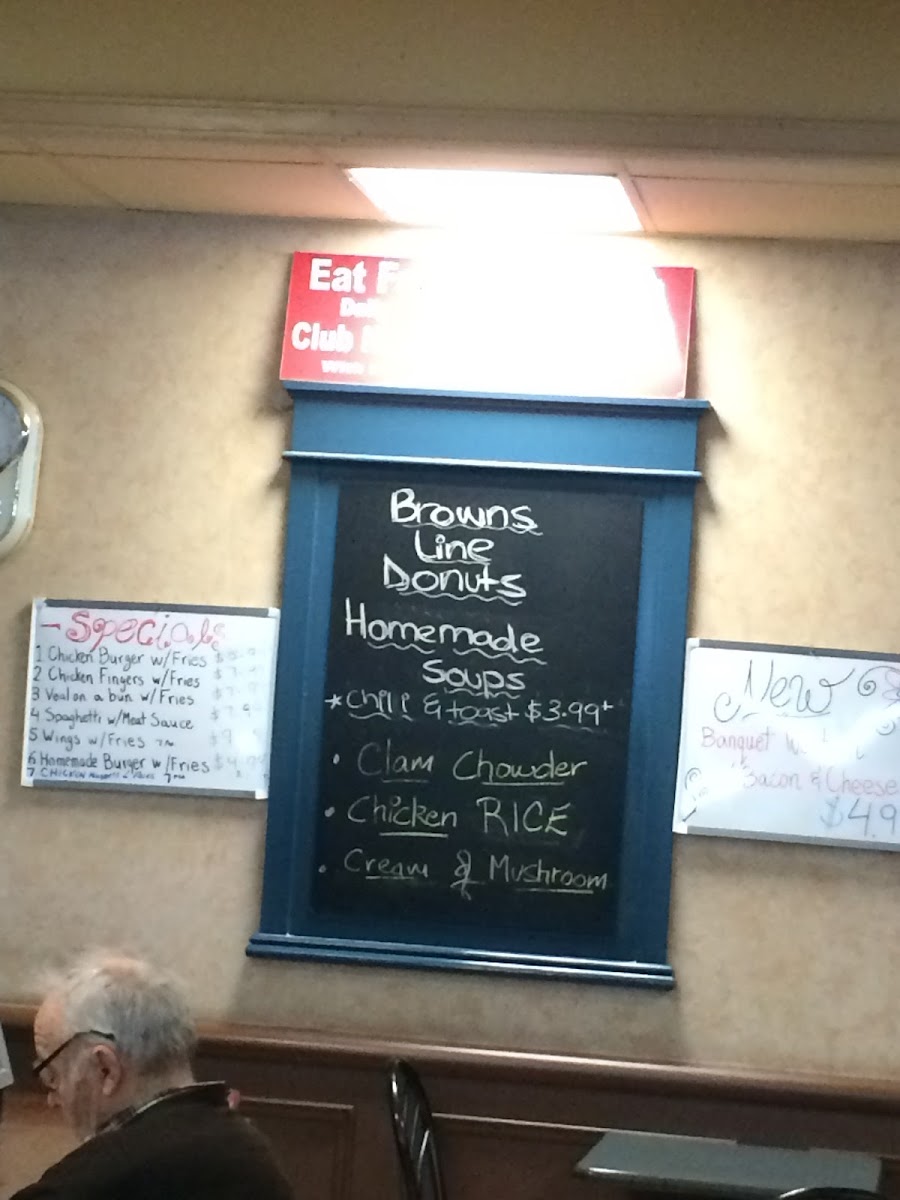 Eat
Club
Browns
Line
Donuts
Homemade
Soups
*Chili & toast $3.99+
• Clam Chowder
• Chicken RICE
• Cream & Mushroom
- Specials
1 Chicken Burger w/Fries
2 Chicken Fingers w/Fries
3 Veal on a bun w/Fries
4 Spaghetti w/Meat Sauce
5 Wings w/Fries
6 Homemade Burger w/Fries
7 CHICKEN
New
Banquet
Bacon & Cheese
$4.9